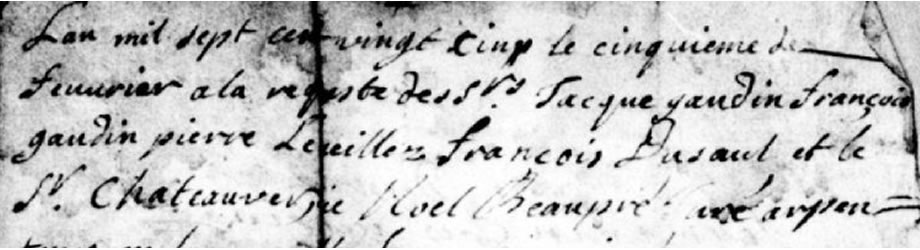 Lan mil sept cent vingt Cinq le cinquieme de
feuurier a la requste des Srs. Jacque gaudin françois
gaudin pierre Leueillez françois Dusaul et le
Sr. Chateauver ie Noel Beaupré arpen=